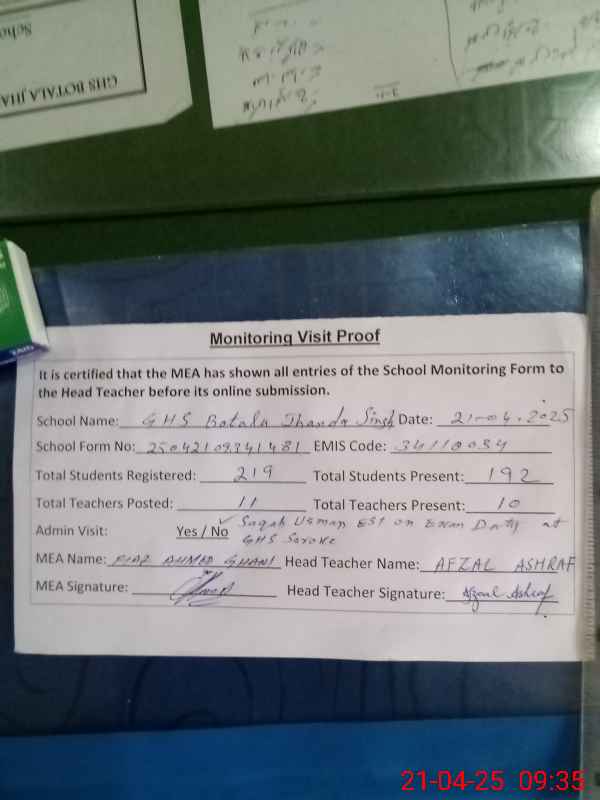 GHS BOTALA JHA
Scho
Monitoring Visit Proof
It is certified that the MEA has shown all entries of the School Monitoring Form to
the Head Teacher before its online submission.
School Name: GHS Botala Jhanda Singh Date: 21-04-2025
School Form No: 25042109341481 EMIS Code: 34110034
Total Students Registered: 219 Total Students Present: 192
Total Teachers Posted: 11 Total Teachers Present: 10
Admin Visit: Yes / No ✓ Usman EST on Exam Duty at
GHS Saroke
MEA Name: RIAZ AHMED GHANI Head Teacher Name: AFZAL ASHRAF
MEA Signature: Head Teacher Signature: Afzal Ashraf
21-04-25 09:35